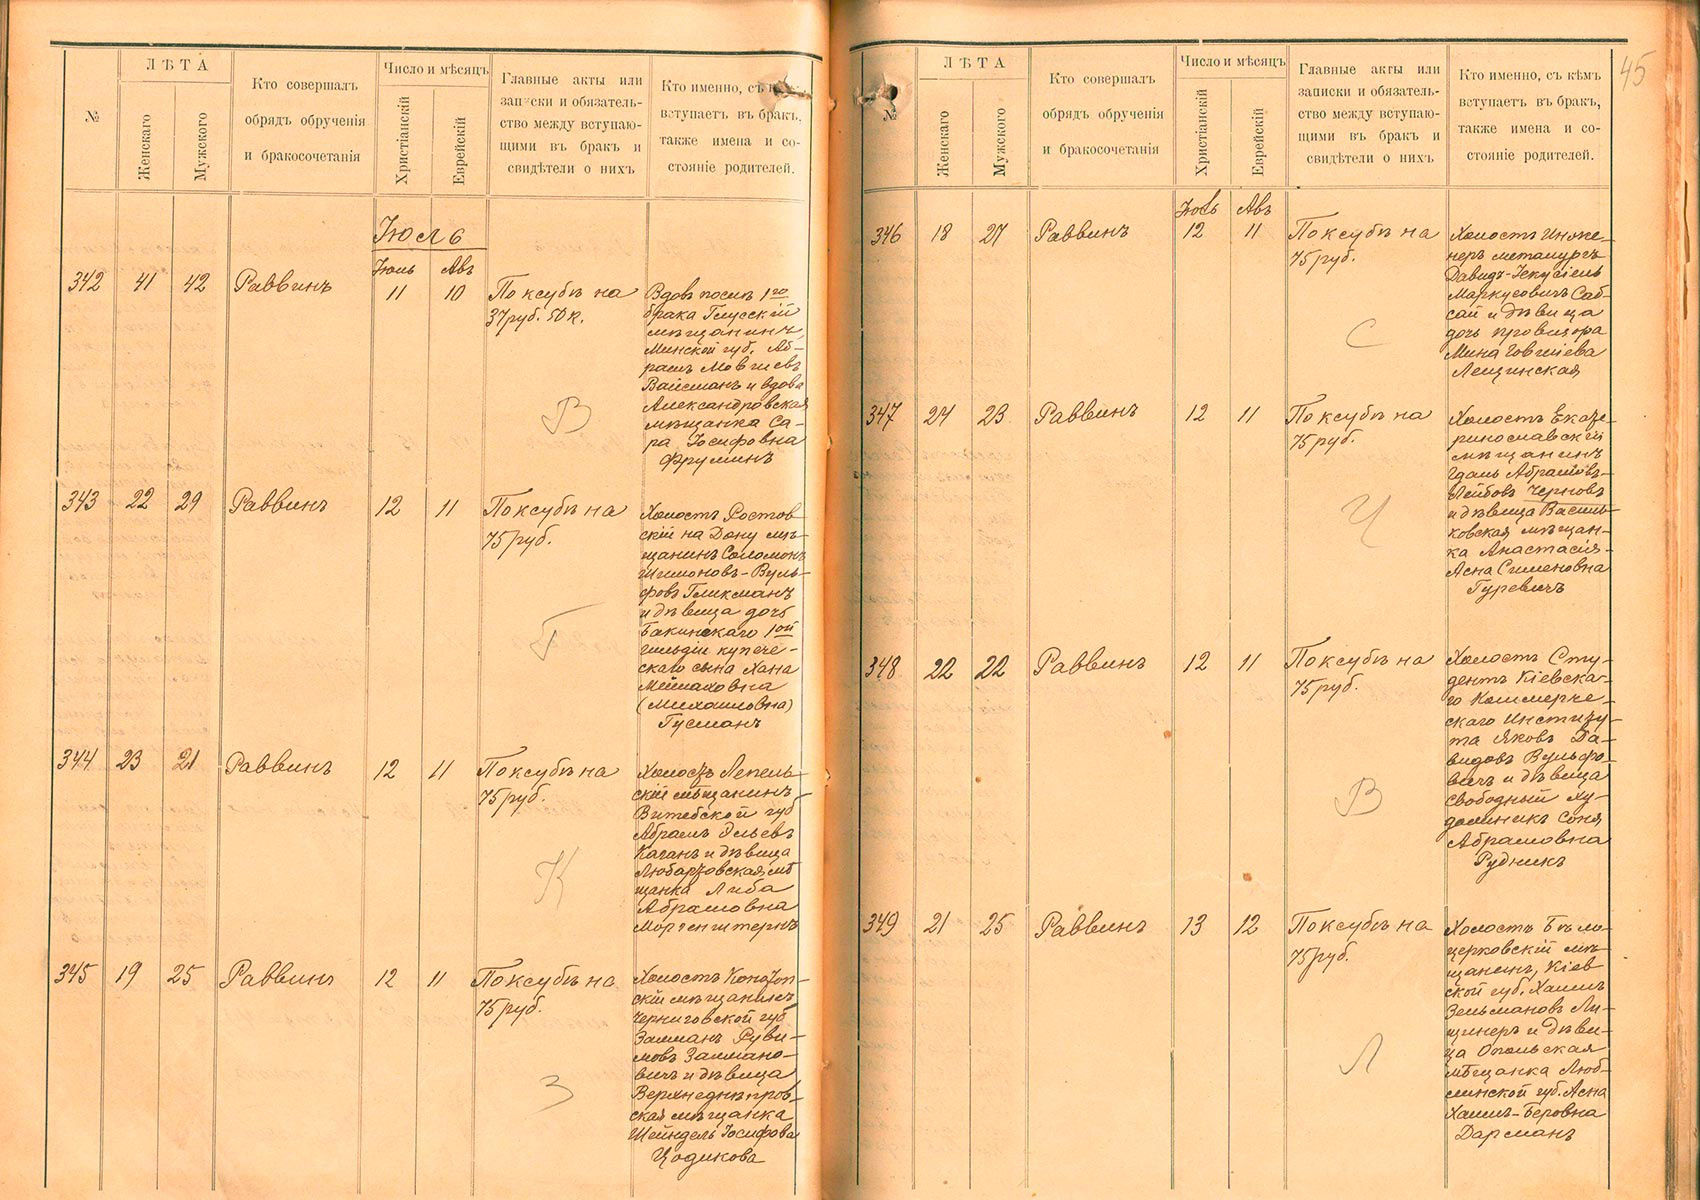 ЛѢТА
№
Женскаго
Мужского
Кто совершалъ
обрядъ обрученія
и бракосочетанія
Число и мѣсяцъ
Христіанскій
Еврейскій
Главные акты или
записки и обязатель-
ство между вступаю-
щими въ бракъ и
свидѣтели о нихъ
Кто именно, съ кѣмъ
вступаетъ въ бракъ,
также имена и со-
стояніе родителей.
Іюль
Іюль Авъ
342 41 42 Раввинъ 11 10 По ксубѣ на
37 руб. 50 к.
В
Вдовъ послѣ 1го
брака Глусскій
мѣщанинъ
Минской губ. Аб-
рамъ Мовшевъ
Вайсманъ и вдова
Александровская
мѣщанка Са-
ра Іосифовна
Фруминъ
343 22 29 Раввинъ 12 11 По ксубѣ на
75 руб.
Г
Холостъ Ростов
скій на Дону мѣ-
щанинъ Соломонъ
Шимоновъ-Вуль-
фовъ Гликманъ
и дѣвица дочь
Бакинскаго 1ой
гильдіи купече-
скаго сына Хана
Мейлаховна
(Михайловна)
Гусманъ
344 23 21 Раввинъ 12 11 По ксубѣ на
75 руб.
К
Холостъ Лепель-
скій мѣщанинъ
Витебской губ
Абрамъ Эльевъ
Каганъ и дѣвица
Любарѣовская мѣ
щанка Либа
Абрамовна
Моргенштернъ
345 19 25 Раввинъ 12 11 По ксубѣ на
75 руб.
З
Холостъ Конотоп-
скій мѣщанинъ
Черниговской губ
Залманъ Руви-
мовъ Залмано-
вичъ и дѣвица
Верхнеднѣпров-
ская мѣщанка
Шейндель Іосифова
Цодикова
45
ЛѢТА
№
Женскаго
Мужского
Кто совершалъ
обрядъ обрученія
и бракосочетанія
Число и мѣсяцъ
Христіанскій
Еврейскій
Главные акты или
записки и обязатель-
ство между вступаю-
щими въ бракъ и
свидѣтели о нихъ
Кто именно, съ кѣмъ
вступаетъ въ бракъ,
также имена и со-
стояніе родителей.
Іюль Авъ
346 18 27 Раввинъ 12 11 По ксубѣ на
75 руб.
С
Холостъ Инже-
неръ металургъ
Давидъ-Іекусіель
Маркусовичъ Саб-
сай и дѣвица
дочь провизора
Мина Говшіева
Лещинская
347 24 23 Раввинъ 12 11 По ксубѣ на
75 руб.
Ч
Холостъ Екате-
ринославскій
мѣщанинъ
Гдаль Абрамовъ-
Лейбовъ Черновъ
и дѣвица Василь-
ковская мѣщан-
ка Анастасія-
Асна Сименовна
Гуревичъ
348 22 22 Раввинъ 12 11 По ксубѣ на
75 руб.
В
Холостъ Сту-
дентъ Кіевска-
го Коммерче-
скаго Институ-
та Яковъ Да-
видовъ Вульфо-
вичъ и дѣвица
свободный ху-
дожникъ Соня
Абрамовна
Рудникъ
349 21 25 Раввинъ 13 12 По ксубѣ на
75 руб.
Л
Холостъ Бѣло-
церковскій мѣ-
щанинъ, Кіев
ской губ. Хаимъ
Зельмановъ Ли-
щинеръ и дѣви-
ца Опольская
мѣщанка Люб-
линской губ. Асна
Хаимъ-Беровна
Дарманъ